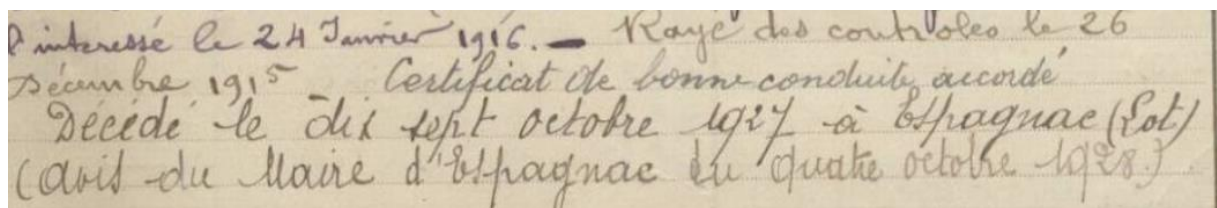 l'interessé le 24 Janvier 1916. — Rayé des controles le 26
Décembre 1915 Certificat de bonne conduite accordé
Décédé le dix sept octobre 1927 à Espagnac (Lot)
(avis du Maire d'Espagnac du quatre octobre 1928.)